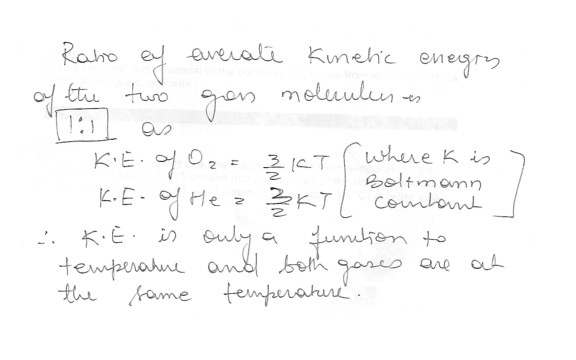 Ratio of averate Kinetic energy
of the two gas molecules is
1:1 as
K.E. of O2 = 3/2 KT [where K is
K.E. of He = 3/2 KT Boltmann
constant]
∴ K.E. is only a funtion to
temperature and both gases are at
the same temperature.